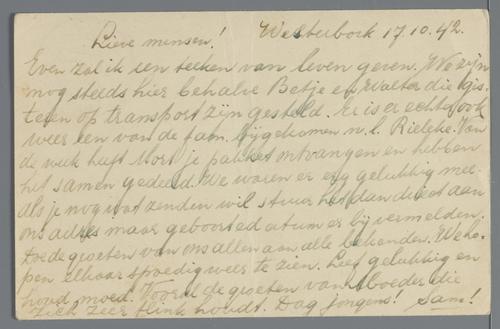 Lieve mensen! Westerbork 17.10.42.
Even zal ik een teeken van leven geven. We zijn
nog steeds hier behalve Betje en Walter die gis-
teren op transport zijn gesteld. Er is er echter ook
weer een van de fam. bijgekomen n.l. Rieleke. Van
de week heeft Mort je pakket ontvangen en hebben
het samen gedeeld. We waren er erg gelukkig mee.
Als je nog wat zenden wil stuur het dan direct aan
ons adres maar geboortedatum er bij vermelden.
Zoo de groeten van ons allen aan alle bekenden. We ho-
pen elkaar spoedig weer te zien. Leef gelukkig en
houd moed. Vooral de groeten van Moeder die
zich zeer flink houdt. Dag jongens! Sam!